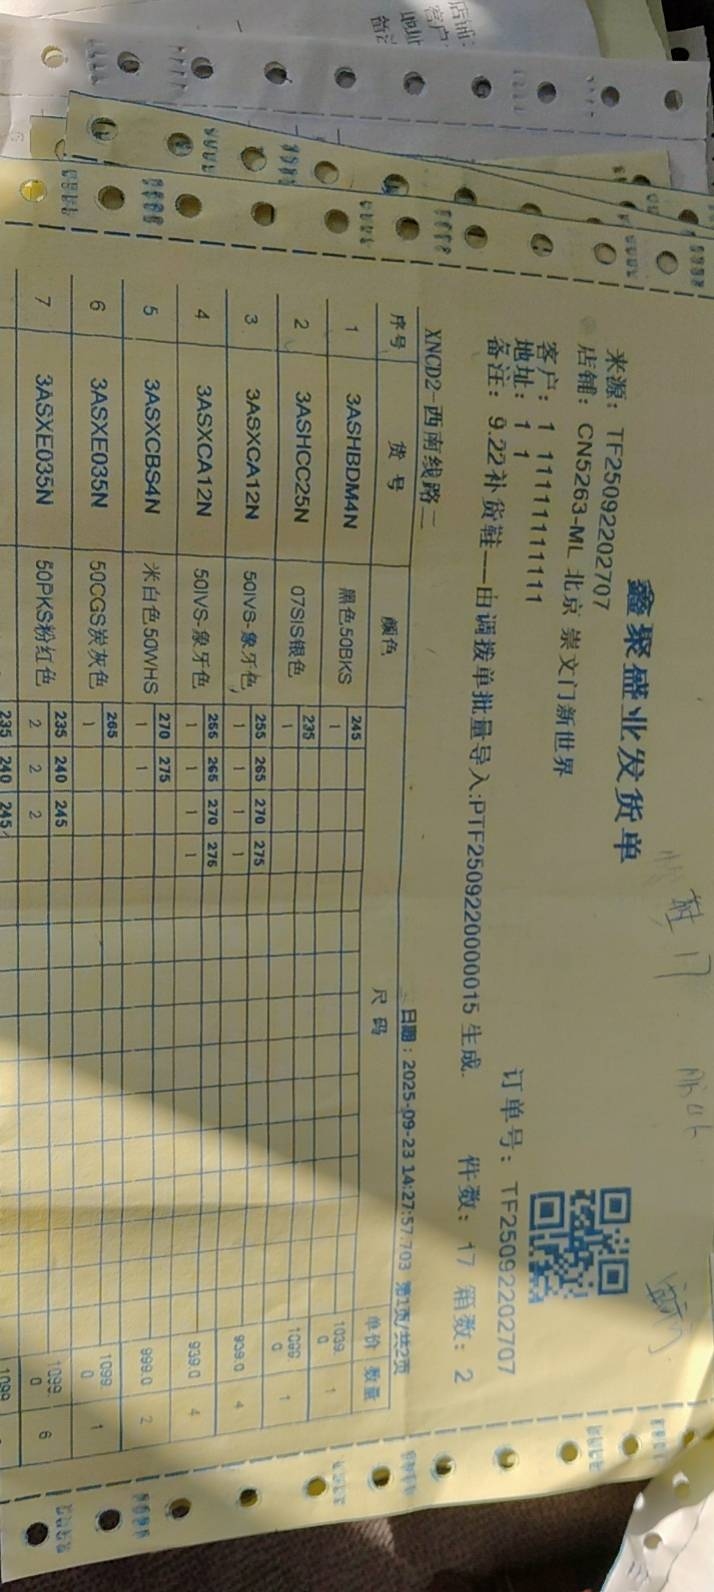 鑫聚盛业发货单
来源：TF25092202707
店铺：CN5263-ML 北京 崇文门新世界
客户：1 11111111111
地址：1 1
订单号：TF25092202707
备注：9.22补货鞋—由调拨单批量导入:PTF2509220000015 生成.
件数：17 箱数：2
XNCD2-西南线路二
日期：2025-09-23 14:27:57.703 第1页/共2页
序号 货号 颜色 尺码 单价 数量
1 3ASHBDM4N 黑色50BKS 245 1039.0 1
1
2 3ASHCC25N 07SIS银色 235 1099.0 1
1
3 3ASXCA12N 50IVS-象牙色 255 265 270 275 939.0 4
1 1 1 1
4 3ASXCA12N 50IVS-象牙色 255 265 270 275 939.0 4
1 1 1 1
5 3ASXCBS4N 米白色50WHS 270 275 999.0 2
1 1
6 3ASXE035N 50CGS炭灰色 265 1099.0 1
1
7 3ASXE035N 50PKS粉红色 235 240 245 1099.0 6
2 2 2
235 240 245 1099
店铺：
客户
地址
鞋 17